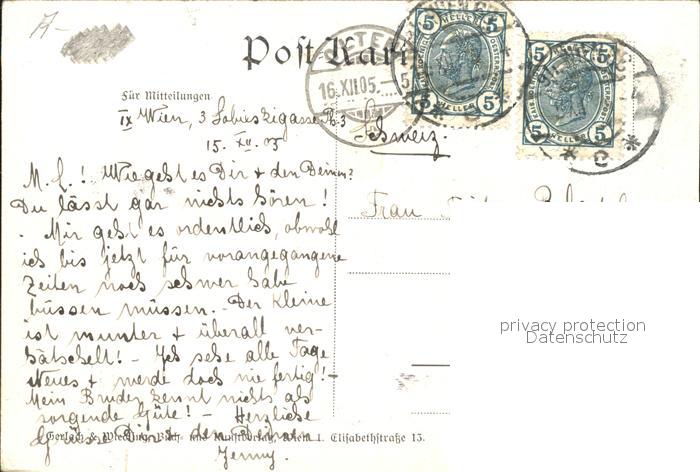 A-
Post Kart
Für Mitteilungen
IX Wien, 3 Sobieszkigasse 3
15. XII. 05
Schweiz.
16.XII.05.-5
5 HELLER 5
5 HELLER 5
M. L.! Wie geht es Dir + den Deinen?
Du lässt gar nichts hören!
Mir geht es ordentlich, obwohl
ich bis jetzt für vorangegangene
Zeiten noch schwer habe
büssen müssen. Der Kleine
ist munter + überall ver-
hätschelt! - Ich sehe alle Tage
Neues + werde doch nie fertig! -
Mein Bruder kennt nichts als
sorgende Güte! - Herzliche
Grüsse Dir + den Deinen
Jenny.
Frau
privacy protection
Datenschutz
Gerlach & Wiedling, Buch- und Kunstverlag, Wien I. Elisabethstraße 13.